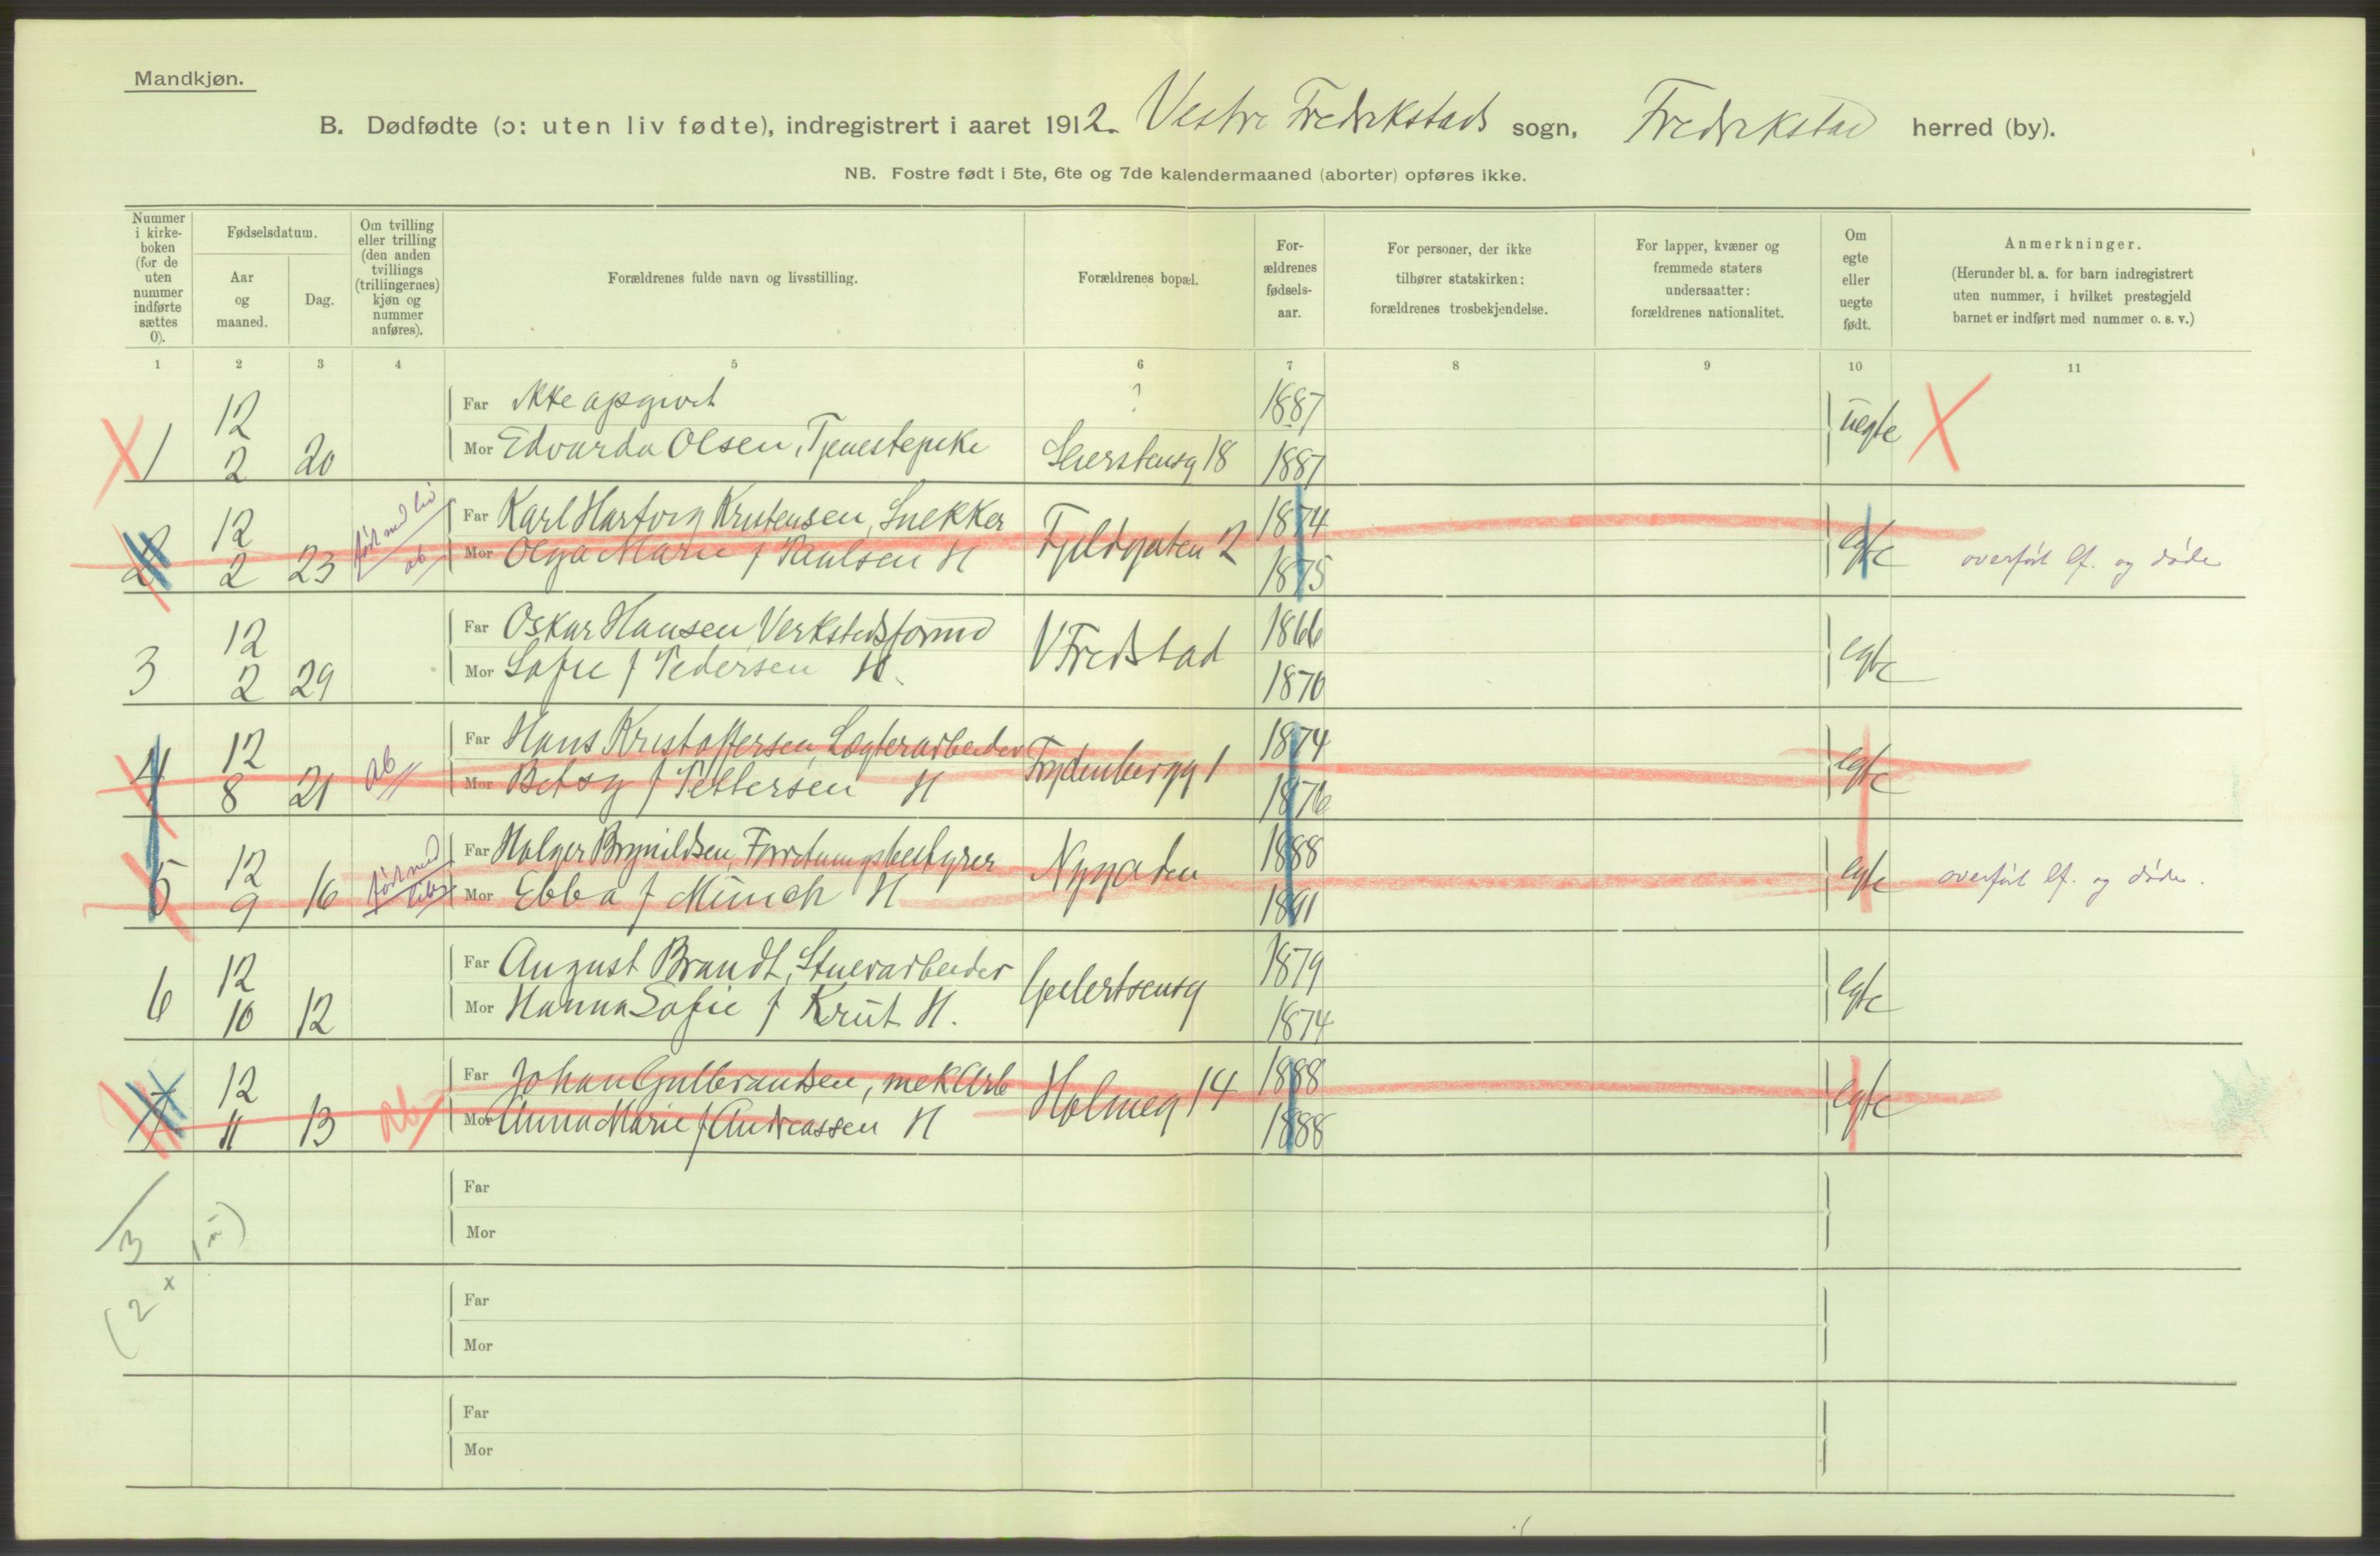 Mandkjøn.
B. Dødfødte (ɔ: uten liv fødte), indregistrert i aaret 1912. Vestre Fredrikstads sogn, Fredrikstad herred (by).
NB. Fostre født i 5te, 6te og 7de kalendermaaned (aborter) opføres ikke.
Nummer i kirke-boken (for de uten nummer indførte sættes 0).
Fødselsdatum.
Aar og maaned.
Dag.
Om tvilling eller trilling (den anden tvillings (trillingernes) kjøn og nummer anføres).
Forældrenes fulde navn og livsstilling.
Forældrenes bopæl.
For-ældrenes fødsels-aar.
For personer, der ikke tilhører statskirken: forældrenes trosbekjendelse.
For lapper, kvæner og fremmede staters undersaatter: forældrenes nationalitet.
Om egte eller uegte født.
Anmerkninger.
(Herunder bl. a. for barn indregistrert uten nummer, i hvilket prestegjeld barnet er indført med nummer o. s. v.)
1 2 3 4 5 6 7 8 9 10 11
12 Far ikke opgivet ? 1887 uegte
1 2 20 Mor Edvarda Olsen, Tjenestepike 18 1887
12 født med liv Far Karl Hartvig Kristensen, Snekker Fjeldgaten 2 1874 egte
2 2 23 ab Mor Olga Marie f Paulsen H 1875 overført lf. og døde
12 Far Oskar Hansen Verkstedsformd V Fredstad 1866 egte
3 2 29 Mor Sofie f Pedersen H. 1870
12 Far Hans Kristoffersen, Lægterarbeider Frydenbergg 1 1874 egte
4 8 21 ab Mor Betsy f Pettersen H 1876
12 født med Far Holger Brynildsen, Forretningsbestyrer Nygaten 1888 egte
5 9 16 liv Mor Ebba f Münch H 1891 overført lf. og døde.
12 Far August Brandt, Stuerarbeider Geelertsensg 1879 egte
6 10 12 Mor Hanna Sofie f Krüt H. 1874
12 Far Johan Gulbrandsen, mek Arb Holmeg 14 1888 egte
7 11 13 ab Mor Anna Marie f Andreassen H 1888
Far
3 Mor
(2 x 1 m)
Far
Mor
Far
Mor